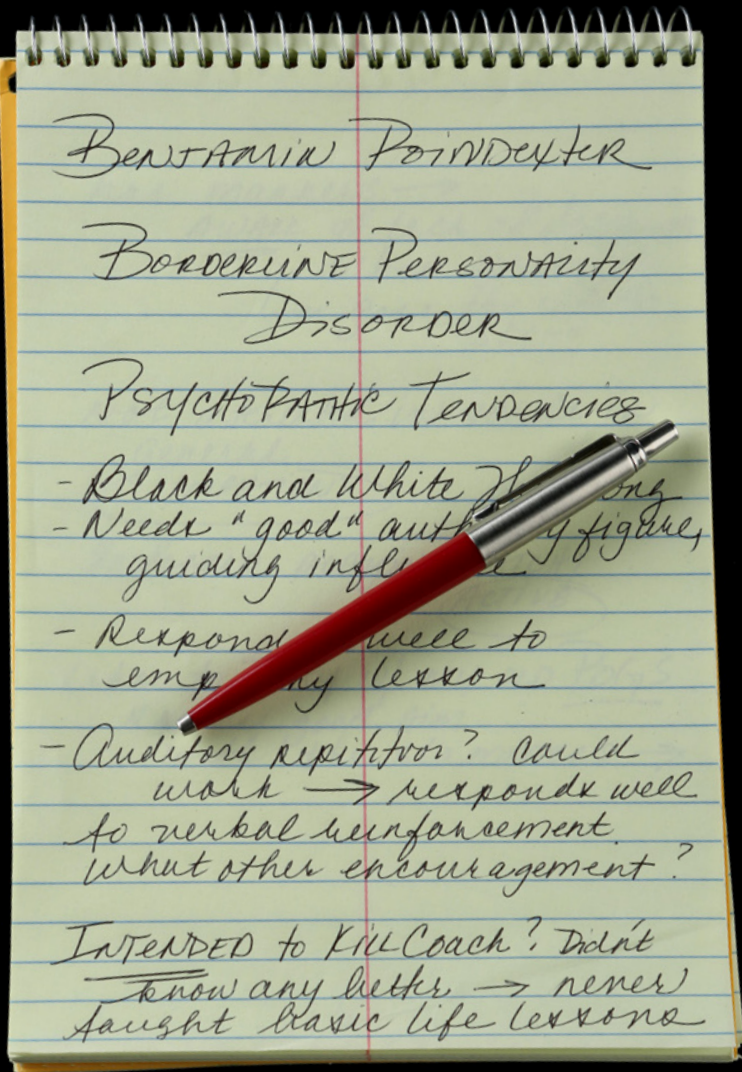 Benjamin Poindexter
Borderline Personality
Disorder
Psychopathic Tendencies
- Black and White
- Needs "good" figure,
guiding
- well to
lesson
- Auditory repititior? could
work → responds well
to verbal reinforcement
what other encouragement?
INTENDED to Kill Coach? Didn't
know any better → never
taught basic life lessons